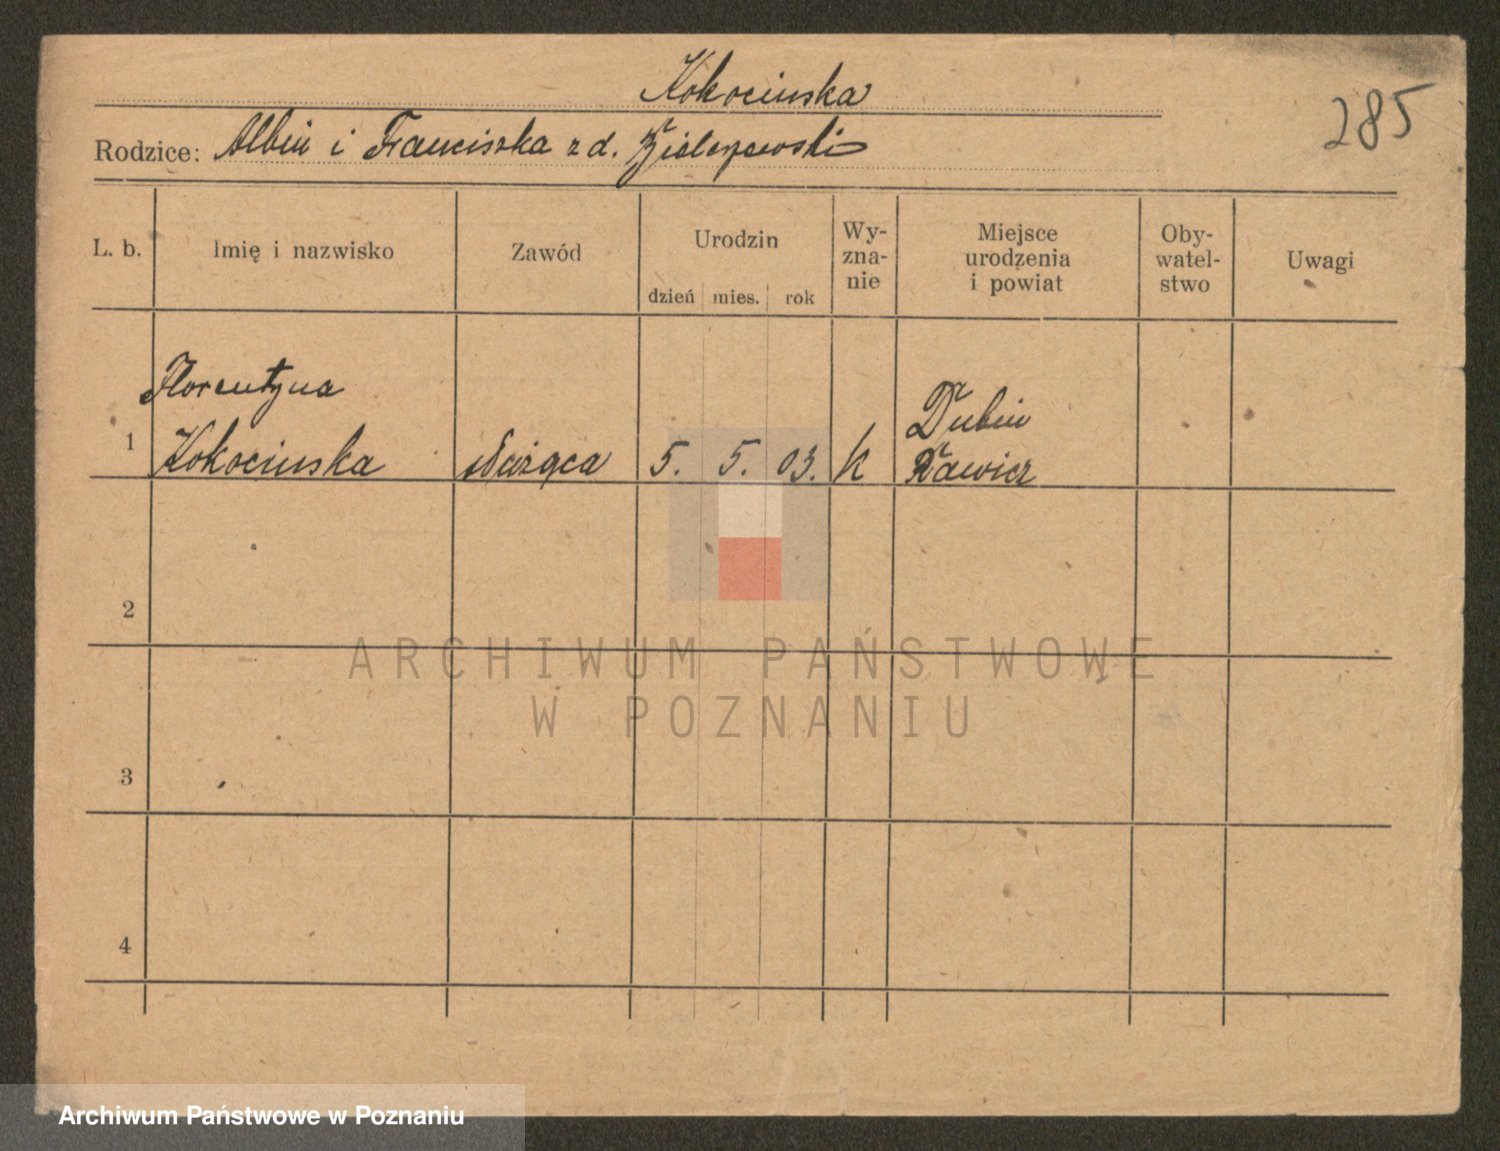 Kokocinska
285
Rodzice: Albin i Franciszka z d.
L. b. Imię i nazwisko Zawód Urodzin Wy- Miejsce Oby- Uwagi
zna- urodzenia watel-
dzień mies. rok nie i powiat stwo
Florentyna Dubin
1 Kokocinska służąca 5. 5. 03. k Rawicz
2
ARCHIWUM PAŃSTWOWE
W POZNANIU
3
4
Archiwum Państwowe w Poznaniu